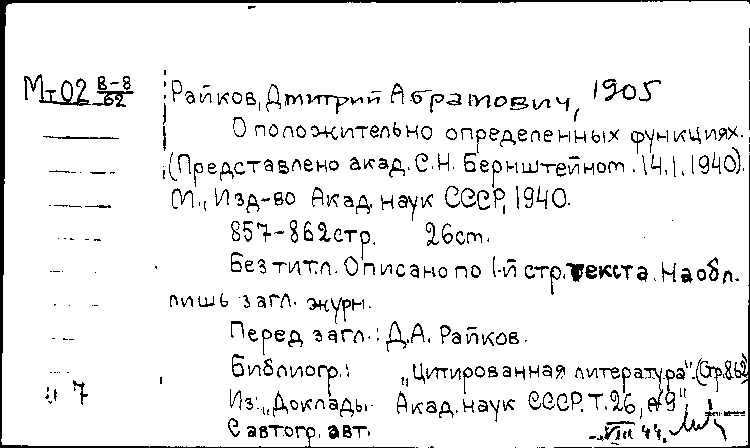 Мт02 В-8/62
Райков, Дмитрий Абрамович, 1905
О положительно определенных функциях.
(Представлено акад. С.Н. Бернштейном. 14.I.1940).
М., Изд-во Акад. наук СССР, 1940.
857-862стр. 26cm.
Без тит.л. Описано по 1-й стр. текста. На обл.
лишь загл. журн.
Перед загл.: Д.А. Райков.
Библиогр.: „Цитированная литература". (Стр.862)
Из: „Доклады Акад. наук СССР. Т.26, №9"
С автогр. авт.
7
VIII 44.